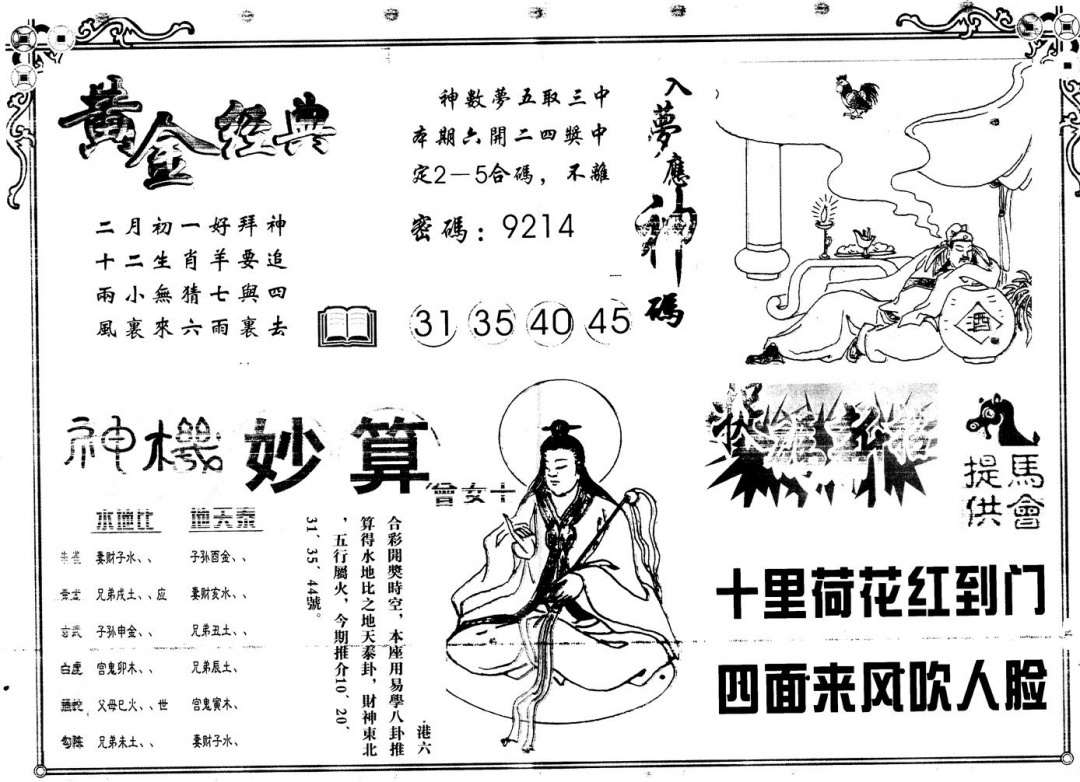 黃金經典
二月初一好拜神
十二生肖羊要追
兩小無猜七與四
風裏來六雨裏去
神數夢五取三中
本期六開二四獎中
定2—5合碼，不離
密碼：9214
31 35 40 45
入夢應神碼
酒
神機妙算
曾女十
水地比 地天泰
朱雀 妻財子水、、 子孙酉金、、
青龙 兄弟戌土、、应 妻財亥水、、
玄武 子孙申金、、 兄弟丑土、、
白虎 官鬼卯木、、 兄弟辰土、
螣蛇 父母巳火、、世 官鬼寅木、
勾陈 兄弟未土、、 妻財子水、
港六
合彩開獎時空，本座用易學八卦推
算得水地比之地天泰卦，財神東北
，五行屬火，今期推介10、20、
31、35、44號。
馬會
提供
十里荷花红到门
四面来风吹人脸